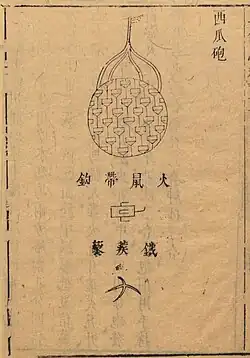 西瓜砲
火鼠帶鈎
鐵蒺藜